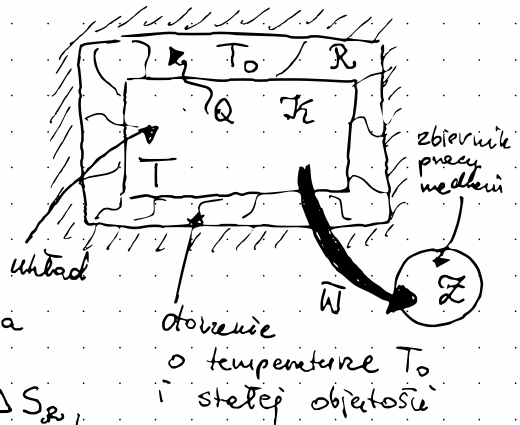 T₀ R
Q K
T
zbiornik
pracy
układ
W
Z
a
otoczenie
o temperaturze T₀
i stałej objętości
Δ S_R,